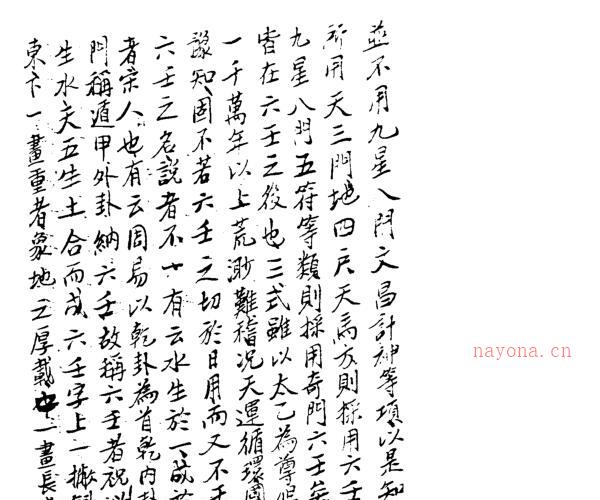 並不用九星八門文昌計神等項以是知
所用天三門地四户天馬方則採用六壬
九星八門五符等類則採用奇門六壬
皆在六壬之後也三式雖以太乙為尊
一千萬年以上荒渺難稽况天運循環
諒知固不若六壬之切於日用而又不
六壬之名說者不一有云水生於一成於
者宗人也有云周易以乾卦為首乾内
門稱遁甲外卦納六壬故稱六壬者祝
生水天五生土合而成六壬字上一撇
東下一畫重者象地之厚載中一畫長
nayona.cn